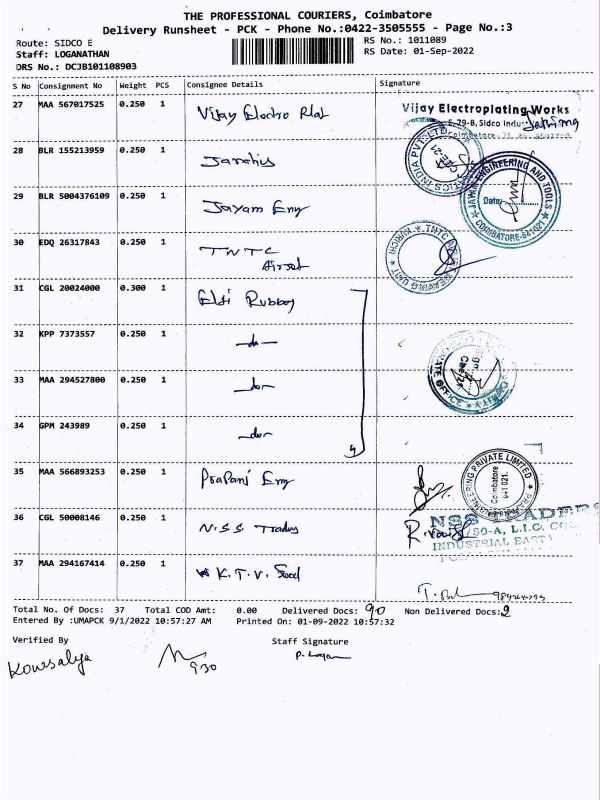 THE PROFESSIONAL COURIERS, Coimbatore
Delivery Runsheet - PCK - Phone No.:0422-3505555 - Page No.:3
Route: SIDCO E
Staff: LOGANATHAN
DRS No.: DCJB101108903
RS No.: 1011089
RS Date: 01-Sep-2022
S No Consignment No Weight PCS Consignee Details Signature
27 MAA 567017525 0.250 1 Vijay Electro Plat
Vijay Electroplating Works
E, 29-B, Sidco
28 BLR 155213959 0.250 1
29 BLR 5004376109 0.250 1 Jayam Eng
ENGINEERING AND TOOLS
Date:
COIMBATORE-641021
30 EDQ 26317843 0.250 1 TNTC
31 CGL 20024000 0.300 1 Elgi Rubber
32 KPP 7373557 0.250 1 -do-
33 MAA 294527800 0.250 1 -do-
34 GPM 243989 0.250 1 -do-
35 MAA 566893253 0.250 1 Prapanj Eng
ENGINEERING PRIVATE LIMITED
Coimbatore
36 CGL 50008146 0.250 1 N.S.S. Traders
NSS TRADERS
50-A, L.I.G. CO
INDUSTRIAL EAST
37 MAA 294167414 0.250 1 K.T.V. Food
Total No. Of Docs: 37 Total COD Amt: 0.00 Delivered Docs: 90 Non Delivered Docs: 2
Entered By :UMAPCK 9/1/2022 10:57:27 AM Printed On: 01-09-2022 10:57:32
Verified By Staff Signature
Kowsalya 9:30 P. Logan